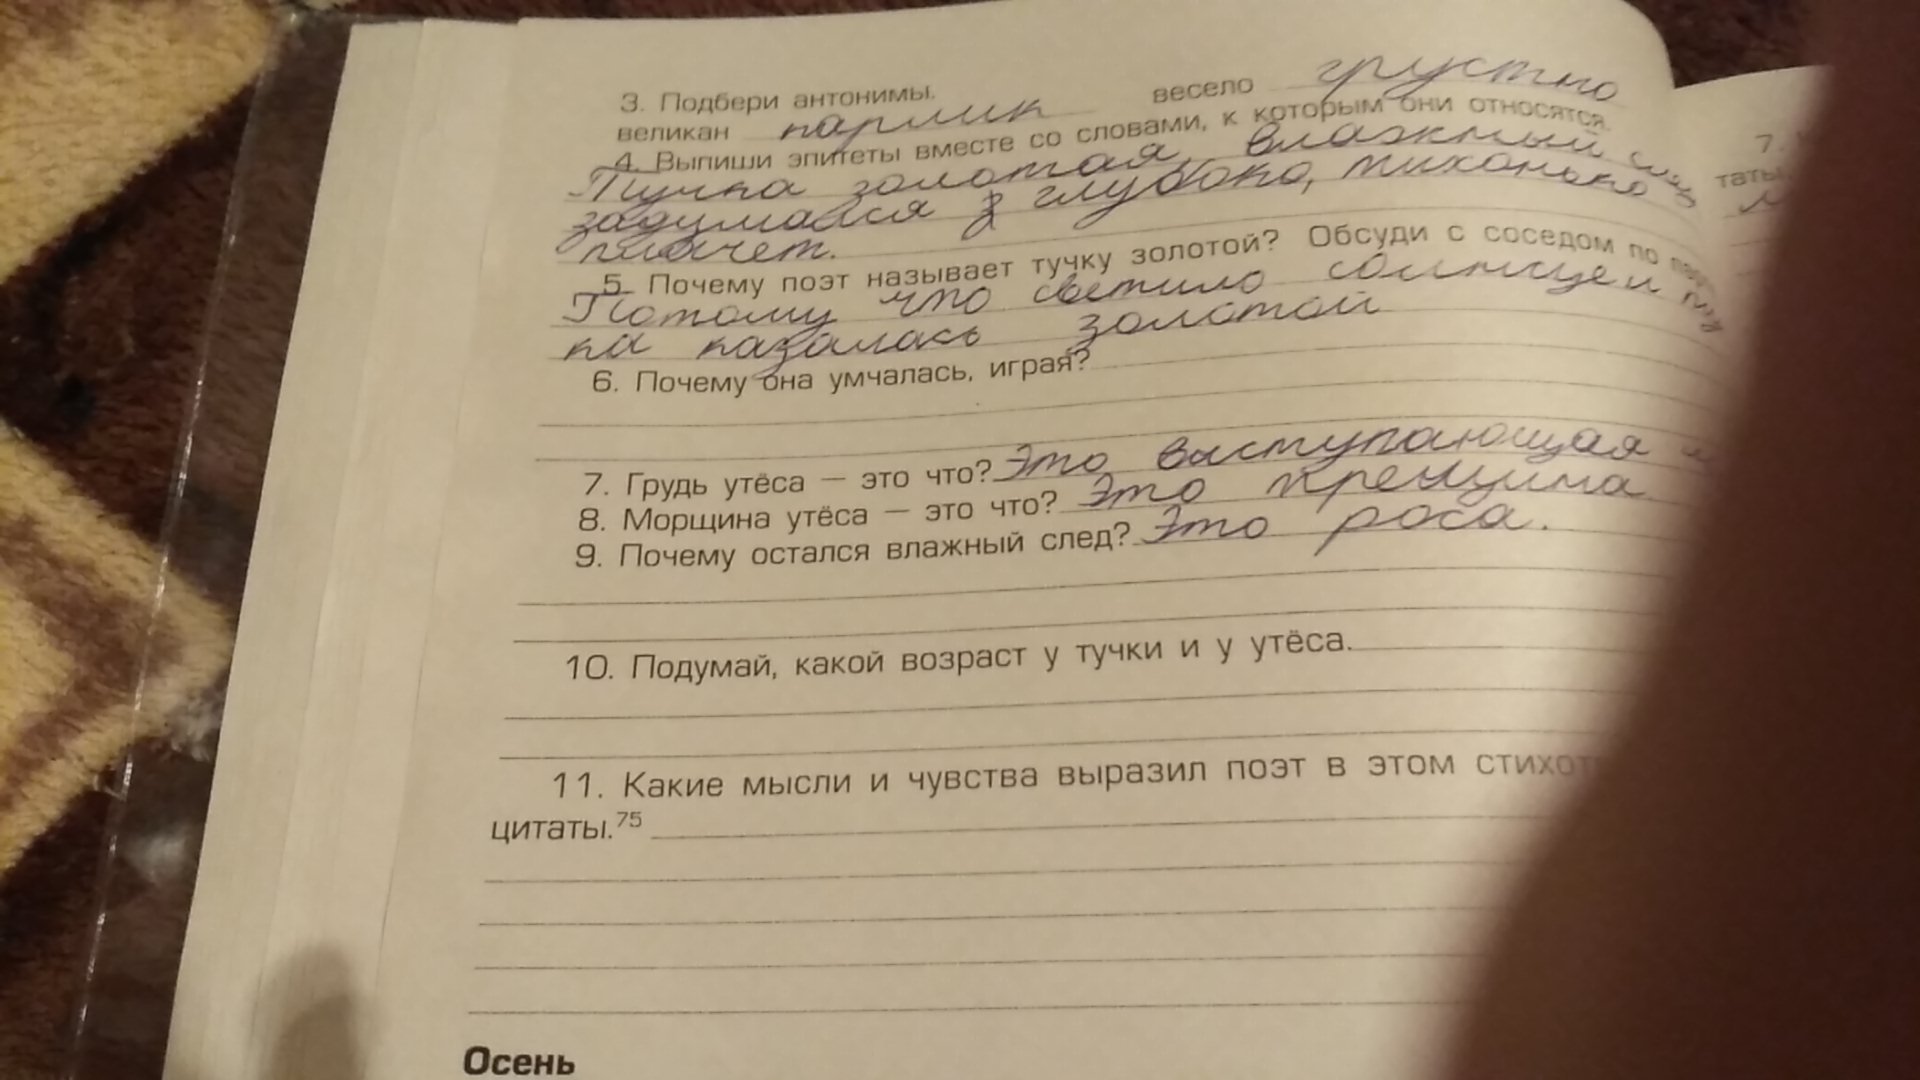 3. Подбери антонимы.
великан карлик весело грустно
4. Выпиши эпитеты вместе со словами, к которым они относятся.
Тучка золотая, влажный след
задумался глубоко, тихонько
плачет.
5. Почему поэт называет тучку золотой? Обсуди с соседом по
Потому что светило солнце и
ка казалась золотой
6. Почему она умчалась, играя?
7. Грудь утёса — это что? Это выступающая
8. Морщина утёса — это что? Это трещина
9. Почему остался влажный след? Это роса.
10. Подумай, какой возраст у тучки и у утёса.
11. Какие мысли и чувства выразил поэт в этом
цитаты.75
Осень
7.